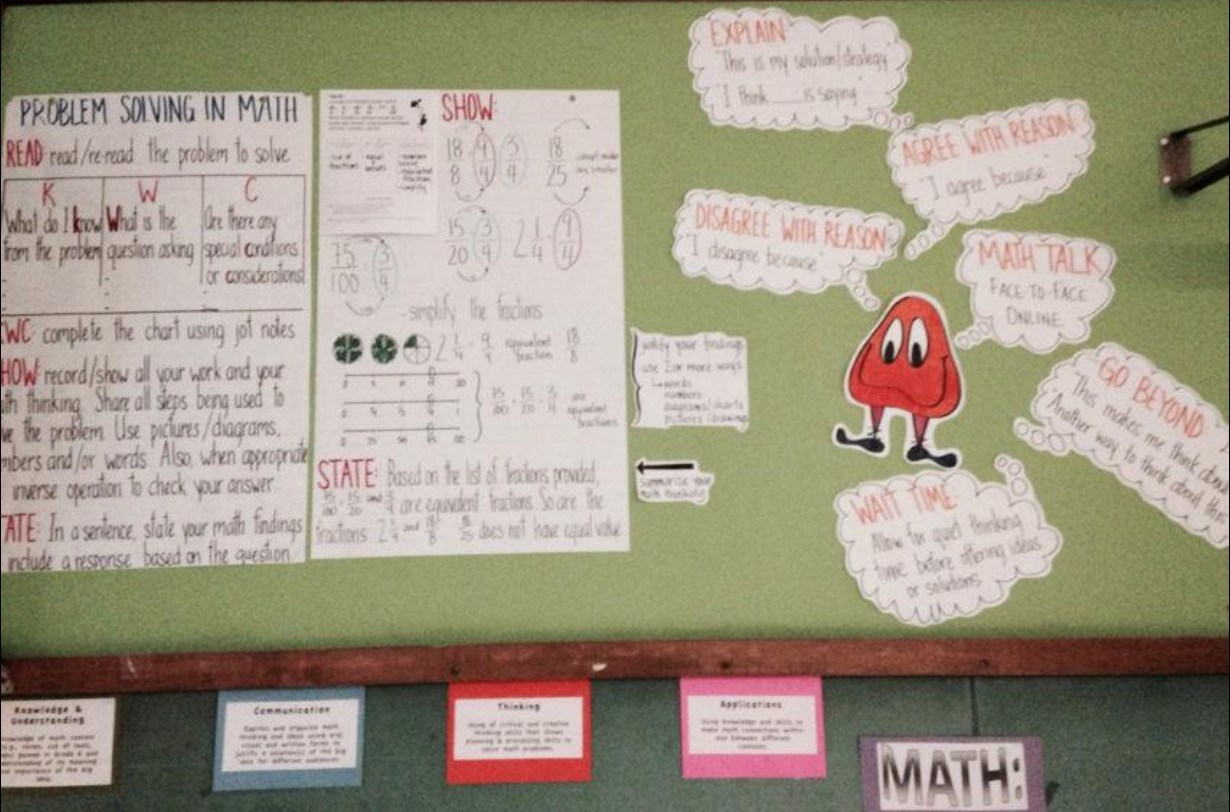 PROBLEM SOLVING IN MATH
READ: read/re-read the problem to solve
K
What do I know
from the problem
W
What is the
question asking
C
Are there any
special conditions
or considerations
KWC: complete the chart using jot notes
HOW: record/show all your work and your
th thinking. Share all steps being used to
ve the problem. Use pictures/diagrams,
mbers and/or words. Also, when appropriate
inverse operation to check your answer.
TATE: In a sentence, state your math findings
include a response based on the question
SHOW:
18/8 9/4 3/4 18/25
15/20 3/4 2 1/4 9/4
75/100 3/4
- simplify the fractions
2 1/4 9/4 equivalent fraction 18/8
75/100 15/20 3/4 are
equivalent
fractions
STATE: Based on the list of fractions provided,
75/100, 15/20 and 3/4 are equivalent fractions. So are the
fractions 2 1/4 and 18/8 18/25 does not have equal value
justify your findings
use 2 or more ways
↳ words
numbers
diagrams/charts
pictures/drawings
summarize your
math thinking
EXPLAIN
"This is my solution/strategy"
"I think ___ is saying
AGREE WITH REASON
"I agree because"
DISAGREE WITH REASON
"I disagree because"
MATH TALK
FACE-TO-FACE
ONLINE
GO BEYOND
"This makes me think about
"Another way to think about this
WAIT TIME
Allow for quiet thinking
time before offering ideas
or solutions
Knowledge &
Understanding
Communication
Express and organize math
thinking and ideas using oral
visual and written forms to
justify a solution(s) of the big
idea for different audiences
Thinking
Using of critical and creative
thinking skills that shows
planning & processing skills to
solve math problems.
Applications
Using knowledge and skills to
make math connections within
and between different
contexts.
MATH: